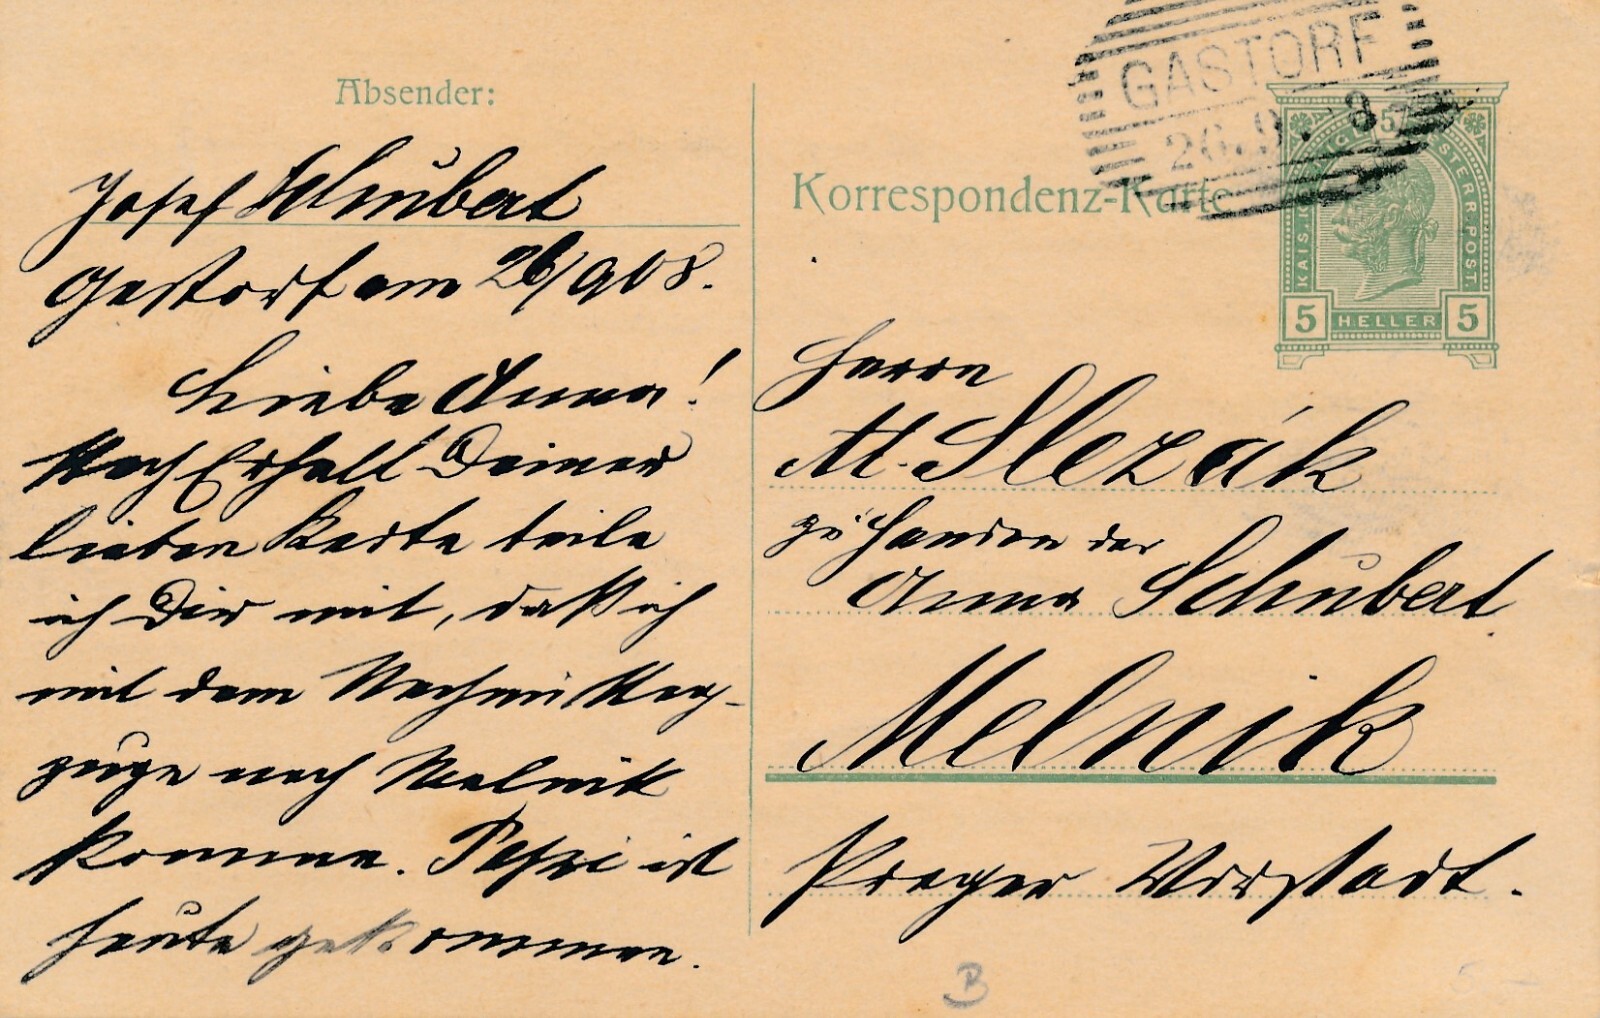 Absender:
Josef Schubert
Gastorf am 26/908.
Liebe Anna!
Nach Erhalt Deiner
lieben Karte teile
ich Dir mit, daß ich
mit dem Nachmittag-
zuge nach Melnik
komme. Peperi ist
heute gekommen.
GASTORF
26.9. 8
Korrespondenz-Karte
5
KAIS. KÖNIGL. ÖSTERR. POST
5 HELLER 5
Herrn
A. Slezák
zu Handen der
Anna Schubert
Melnik
Prager Vorstadt.
B
5-